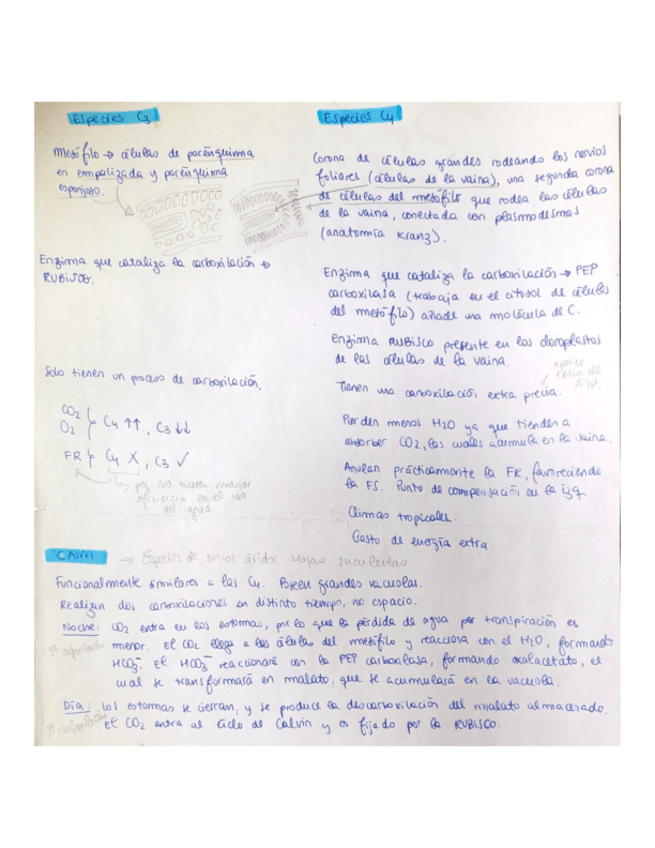 Especies C3
Mesófilo → células de parénquima
en empalizada y parénquima
esponjoso.
Enzima que cataliza la carboxilación →
RUBISCO.
Solo tienen un proceso de carboxilación.
CO2
O2
C4 ↑↑, C3 ↓↓
FR
C4 X, C3 ✓
por eso tienen mayor
eficiencia en el uso
del agua
Especies C4
Corona de células grandes rodeando los nervios
foliares (células de la vaina), una segunda corona
de células del mesófilo que rodea las células
de la vaina, conectada con plasmodesmos
(anatomía Kranz).
Enzima que cataliza la carboxilación → PEP
carboxilasa (trabaja en el citosol de células
del mesófilo) añade una molécula de C.
Enzima RUBISCO presente en los cloroplastos
de las células de la vaina.
Tienen una carboxilación extra previa.
aporte
extra de
ATP.
Pierden menos H2O ya que tienden a
absorber CO2, las cuales acumula en la vaina.
Anulan prácticamente la FR, favoreciendo
la FS. Punto de compensación en la izq.
Climas tropicales.
Gasto de energía extra
CAM → Especies de sitios áridos hojas suculentas
Funcionalmente similares a las C4. Poseen grandes vacuolas.
Realizan dos carboxilaciones en distinto tiempo, no espacio.
Noche: CO2 entra en los estomas, por lo que la pérdida de agua por transpiración es
menor. El CO2 llega a las células del mesófilo y reacciona con el H2O, formando
HCO3-. El HCO3- reaccionará con la PEP carboxilasa, formando oxalacetato, el
cual se transformará en malato, que se acumulará en la vacuola.
Día: Los estomas se cierran, y se produce la descarboxilación del malato almacenado.
El CO2 entra al Ciclo de Calvin y es fijado por la RUBISCO.